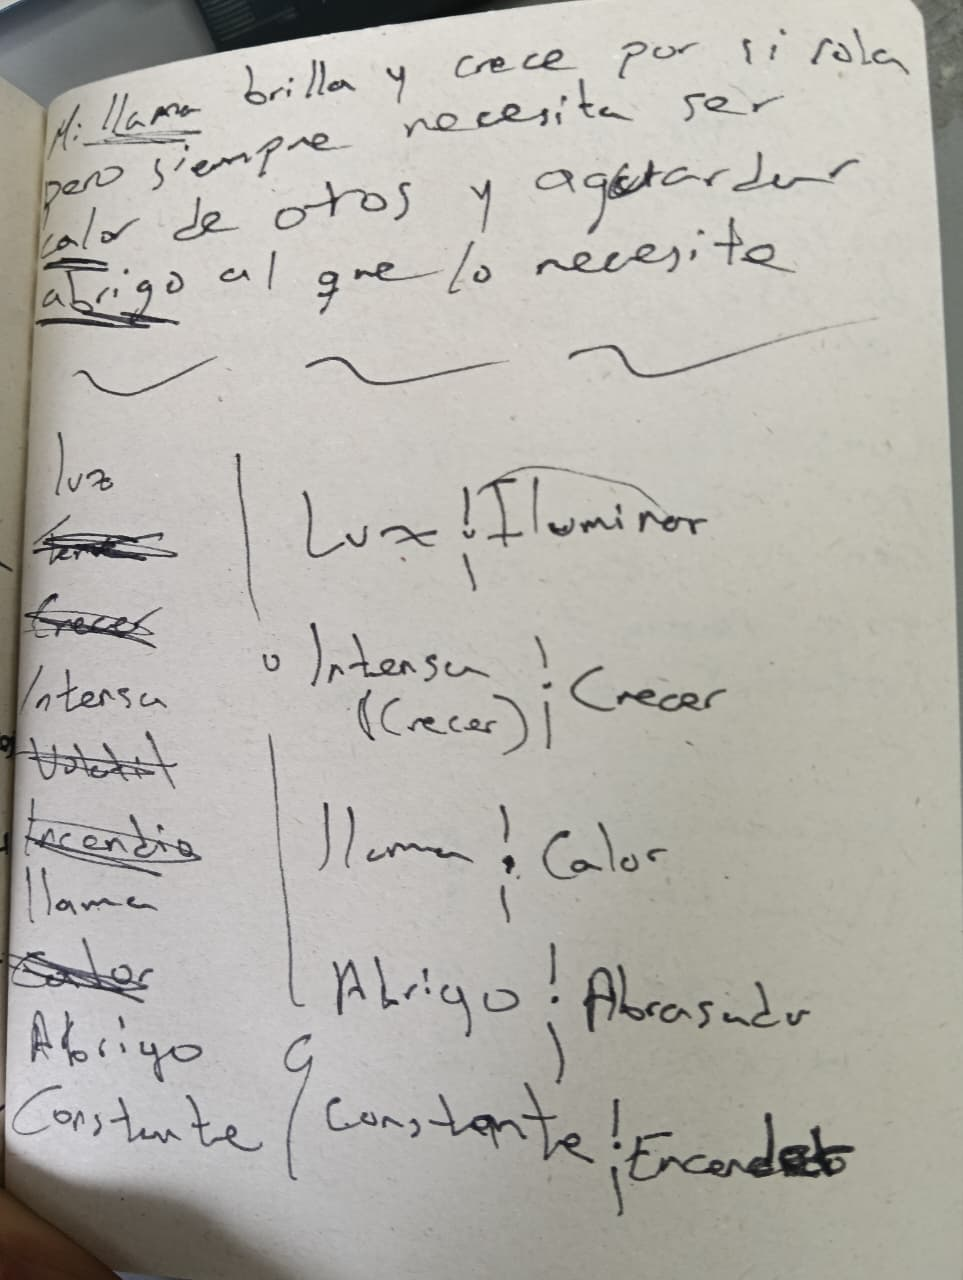 Mi llama brilla y crece por si sola
pero siempre necesita ser
calor de otros y
abrigo al que lo necesite
luz
Crecer
Intensa
Volatil
Incendio
llama
Calor
Abrigo
Constante
Luz ¡ Iluminar
Intensa ¡ Crecer
(Crecer)
llama ¡ Calor
Abrigo ¡ Abrasador
Constante ¡